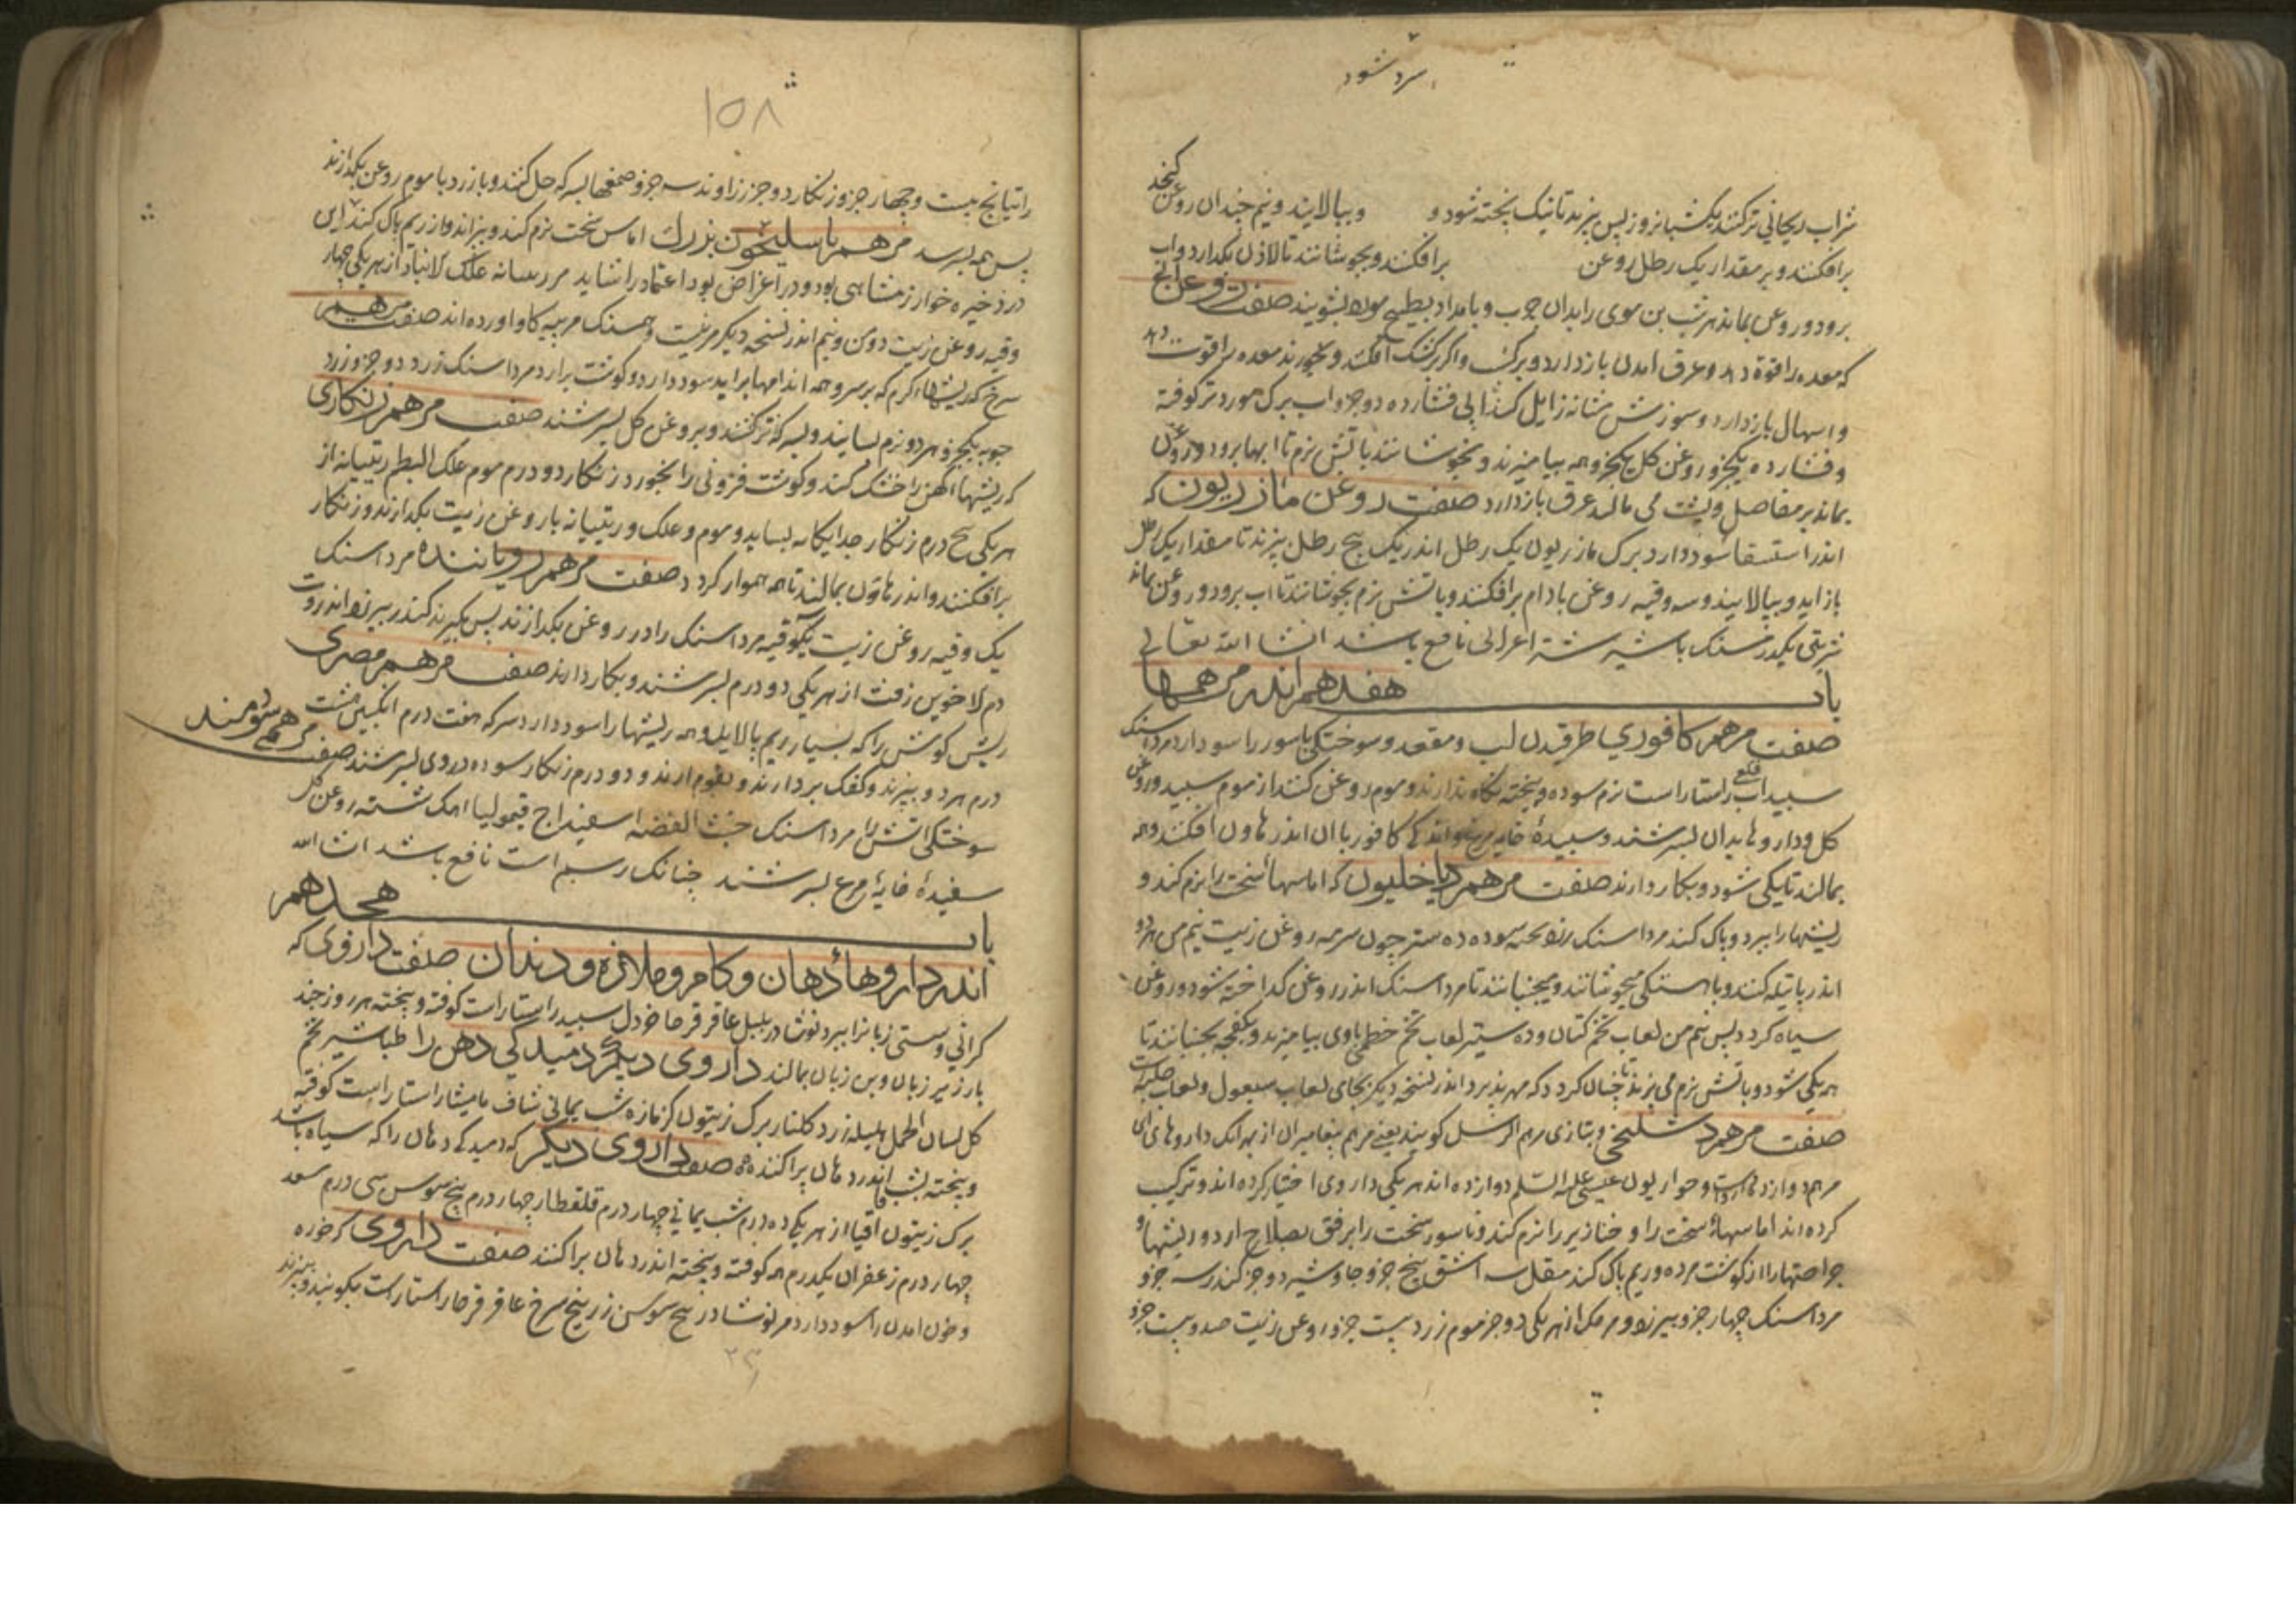 سرد شود
شراب ریحانی ترکنند یکشبانروز پس بپزند تا نیک پخته شود و وبپالایند و نیم چندان روغن کنجد
برافکنند و بر مقدار یک رطل روغن برافکنند و بجوشانند تا لاذن بکدازد واب
برود و روغن بماند هر شب بن موی را بدان چرب و بامداد بطبیخ بشویند صفت روغن
که معده را قوة دهد و عرق امدن باز دارد و برک و اکر افکنند و بخورند معده را قوت دهد
و اسهال باز دارد و سوزش مثانه زایل کند ابی فشارده دو جزو اب برک مورد تر کوفته
و فشارده یکجزو روغن کل یکجزو همه بیامیزند و بجوشانند باتش نرم تا ابها برود و روغن
بماند بر مفاصل و پشت می مالند عرق باز دارد صفت روغن مازریون که
اندر استسقا سود دارد برک مازریون یک رطل اندر پنج رطل بپزند تا مقدار یک رطل
باز اید و بپالایند و سه وقیه روغن بادام برافکنند و باتش نرم بجوشانند تا اب برود و روغن بماند
شربتی یکدرمسنک با شیر شتر اعرابی نافع باشد انشا الله تعالی
باب هفدهم اندر مرهمها
صفت مرهم کافوری طرقیدن لب و مقعد و سوختکی باسور را سود دارد مرداسنک
سبیداب قلعی راستاراست نرم سوده و پخته نکاه دارند و موم روغن کنند از موم سبید و روغن
کل و داروها بدان بسرشند و سبیدهٔ خایه مرغ و اندکی کافور با ان اندر هاون افکنند و همه
بمالند تا یکی شود و بکار دارند صفت مرهم دیاخلیون که اماسهاء سخت را نرم کند و
ریشها را ببرد و پاک کند مرداسنک سوده ده ستیر چون سرمه روغن زیت نیم من هر دو
اندر پاتیله کنند و باهستکی میجوشانند و میجنبانند تا مرداسنک اندر روغن کداخته شود و روغن
سیاه کردد پس نیم من لعاب تخم کتان و ده ستیر لعاب تخم خطمی باوی بیامیزند و بکفچه بجنبانند تا
همه یکی شود و باتش نرم می پزند تا چنان کردد که مهر پذیرد اندر نسخه دیکر بجای لعاب سبغول و لعاب حلبه است
صفت مرهم دشلیخی و بتازی مرهم الرسل کویند یعنی مرهم پیغامبران از بهر انک داروهای این
مرهم دوازده است و حواریون عیسی علیه السلم دوازده اند هر یکی داروی اختیار کرده اند و ترکیب
کرده اند اماسهاء سخت را و خنازیر را نرم کند و ناسور سخت را برفق بصلاح ارد و ریشها و
جراحتها را از کوشت مرده و ریم پاک کند مقل سه اشق پنج جزو جاوشیر دو جزو کندر سه جزو
مرداسنک چهار جزو بیرزد و مر مکی از هر یکی دو جزو موم زرد بیست جزو روغن زیت صد و بیست جزو
۱۵۸
راتیانج بیست و چهار جزو زنکار دو جزو زراوند سه جزو صمغها بسرکه حل کنند و بازرد با موم روغن بکدازند
پس همه بسرند مرهم باسلیخون بزرک اماس سخت نرم کند و بپزاند و از ریم پاک کند این
در ذخیره خوارزمشاهی بود و در اغراض بود اعتماد را نشاید مر راسانه علک لانباد از هر یکی چهار
وقیه روغن زیت دو من و نیم اندر نسخه دیکر مر نیست و همسنک مر پیه کاو اورده اند صفت مرهم
سرخ که ریشهاء کرم که بر سر و همه اندامها براید سود دارد و کوشت برارد مرداسنک زرد دو جزو زرد
جوبه یکجزو هر دو نرم بسایند و بسرکه ترکنند و بروغن کل بسرشند صفت مرهم زنکاری
که ریشهاء کهن را خشک کند و کوشت فزونی را بخورد زنکار دو درم موم علک البطم ریتیانه از
هر یکی پنج درم زنکار جداکانه بساید و موم و علک و ریتیانه با روغن زیت بکدازند و زنکار
برافکنند و اندر هاون بمالند تا همه هموار کردد صفت مرهم رویاننده مرداسنک
یک وقیه روغن زیت یکوقیه مرداسنک را در روغن بکدازند پس بکیرند کندر بیرزد انزروت
دم الاخوین زفت از هر یکی دو درم بسرشند و بکار دارند صفت مرهم مصری
ریش کوش را که بسیار ریم پالاید و همه ریشها را سود دارد سرکه هفت درم انکبین هشت
درم هر دو بپزند و کفک بردارند و بقوام ارند و دو درم زنکار سوده در وی بسرشند صفت مرهم سودمند
سوختکی اتش را مرداسنک خبث الفضه اسفیداج قیمولیا اهک شسته روغن کل
سفیدهٔ خایهٔ مرغ بسرشند چنانک رسم است نافع باشد انشا الله
باب هجدهم
اندر داروهاء دهان و کام و ملازه و دندان صفت داروی که
کرانی و سستی زبانرا ببرد نوشادر پلپل عاقرقرحا خردل سبید راستاراست کوفته و پخته هر روز چند
بار زیر زبان و بن زبان بمالند داروی دیکر دمیدکی دهن را طباشیر تخم
کل لسان الحمل هلیله زرد کلنار برک زیتون کزمازه شب یمانی شاف مامیثا راستاراست کوفته
و پخته بشب اندر دهان پراکنند صفت داروی دیکر که دمیدکی دهان را که سیاه باشد
برک زیتون اقاقیا از هر یک ده درم شب یمانی چهار درم قلقطار چهار درم بیخ سوس سی درم سعد
چهار درم زعفران یکدرم همه کوفته و پخته اندر دهان پراکنند صفت داروی که خوره
و خون امدن را سود دارد مر نوشادر بیخ سوسن زرنیخ سرخ عاقرقرحا راستاراست بکوبند و بپزند